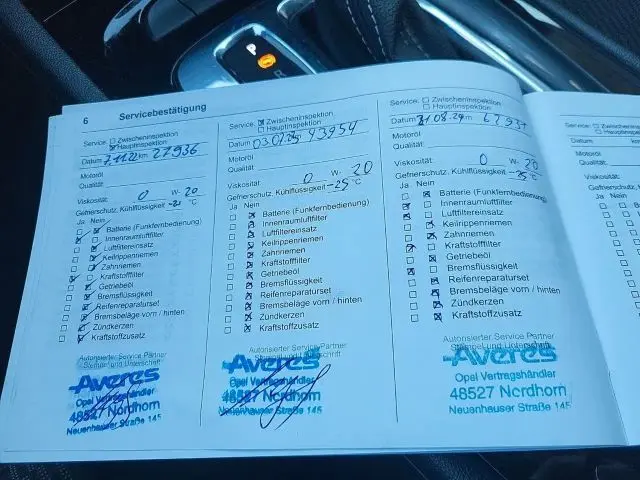 6 Servicebestätigung
Service: Zwischeninspektion
Hauptinspektion
Datum 7.11.22 km 27936
Motoröl
Qualität:
Viskosität: 0 W- 20
Gefrierschutz, Kühlflüssigkeit °C
Ja Nein
Batterie (Funkfernbedienung)
Innenraumluftfilter
Luftfiltereinsatz
Keilrippenriemen
Zahnriemen
Kraftstofffilter
Getriebeöl
Bremsflüssigkeit
Reifenreparaturset
Bremsbeläge vorn / hinten
Zündkerzen
Kraftstoffzusatz
Autorisierter Service Partner
Stempel und Unterschrift
Averes
Opel Vertragshändler
48527 Nordhorn
Neuenhauser Straße 145
Service: Zwischeninspektion
Hauptinspektion
Datum km 43954
Motoröl
Qualität:
Viskosität: 0 W- 20
Gefrierschutz, Kühlflüssigkeit -25 °C
Ja Nein
Batterie (Funkfernbedienung)
Innenraumluftfilter
Luftfiltereinsatz
Keilrippenriemen
Zahnriemen
Kraftstofffilter
Getriebeöl
Bremsflüssigkeit
Reifenreparaturset
Bremsbeläge vorn / hinten
Zündkerzen
Kraftstoffzusatz
Autorisierter Service Partner
Stempel und Unterschrift
Averes
Opel Vertragshändler
48527 Nordhorn
Neuenhauser Straße 145
Service: Zwischeninspektion
Hauptinspektion
Datum km
Motoröl
Qualität:
Viskosität: 0 W- 20
Gefrierschutz, Kühlflüssigkeit -25 °C
Ja Nein
Batterie (Funkfernbedienung)
Innenraumluftfilter
Luftfiltereinsatz
Keilrippenriemen
Zahnriemen
Kraftstofffilter
Getriebeöl
Bremsflüssigkeit
Reifenreparaturset
Bremsbeläge vorn / hinten
Zündkerzen
Kraftstoffzusatz
Autorisierter Service Partner
Stempel und Unterschrift
Averes
Opel Vertragshändler
48527 Nordhorn
Neuenhauser Straße 145
Service:
Datum
Motoröl
Qualität:
Viskosität:
Ja Nein
P
R